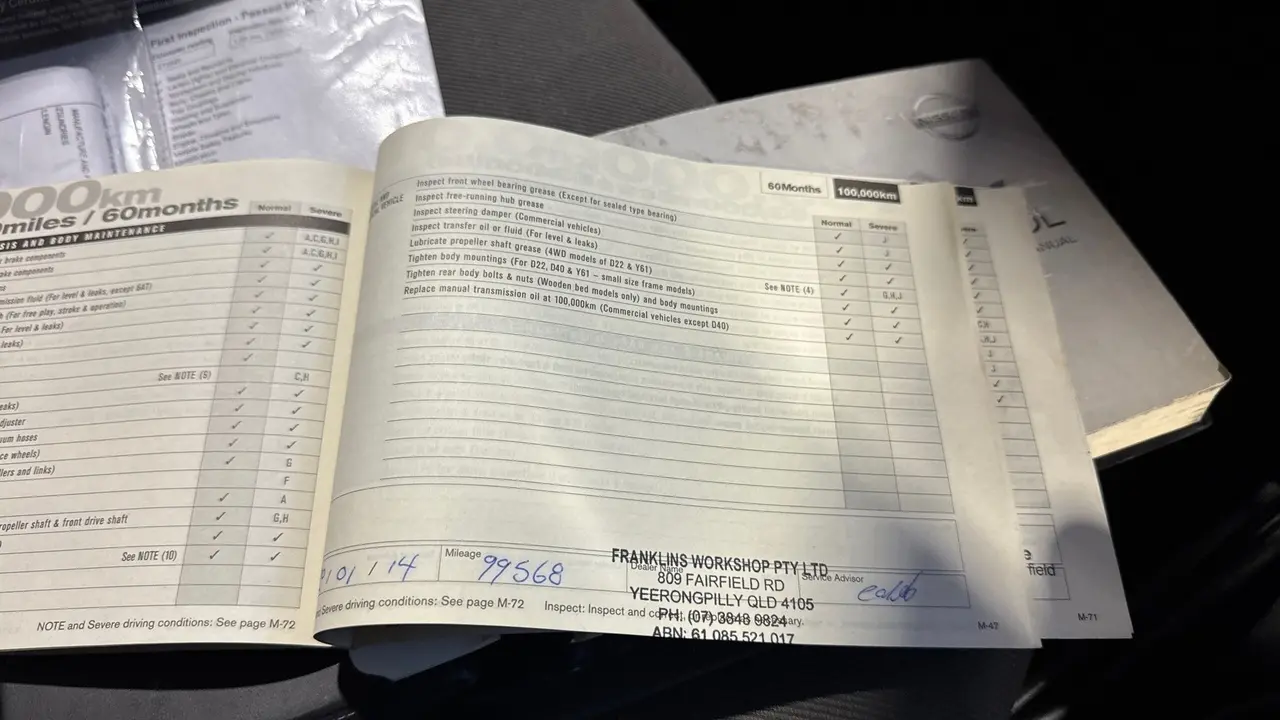 First Inspection - Passed In
NISSAN
MANUAL
000km
0miles / 60months
Normal Severe
SIS AND BODY MAINTENANCE
brake components A,C,G,H,I
ake components A,C,G,H,I
mission fluid (For level & leaks, except 6AT)
(For free play, stroke & operation)
For level & leaks)
leaks)
See NOTE (5) C,H
eaks)
djuster
uum hoses
ce wheels)
llers and links) G
F
A
ropeller shaft & front drive shaft G,H
See NOTE (10)
NOTE and Severe driving conditions: See page M-72
VEHICLE
60Months 100,000km
Normal Severe
Inspect front wheel bearing grease (Except for sealed type bearing)
Inspect free-running hub grease
Inspect steering damper (Commercial vehicles)
Inspect transfer oil or fluid (For level & leaks)
Lubricate propeller shaft grease (4WD models of D22 & Y61) See NOTE (4) G,H,J
Tighten body mountings (For D22, D40 & Y61 – small size frame models)
Tighten rear body bolts & nuts (Wooden bed models only) and body mountings
Replace manual transmission oil at 100,000km (Commercial vehicles except D40)
01 / 14 Mileage 99568 Dealer Name Service Advisor caleb
FRANKLINS WORKSHOP PTY LTD
809 FAIRFIELD RD
YEERONGPILLY QLD 4105
PH: (07) 3848 9824
ABN: 61 085 521 017
Severe driving conditions: See page M-72 Inspect: Inspect and
M-47
km
field
M-71